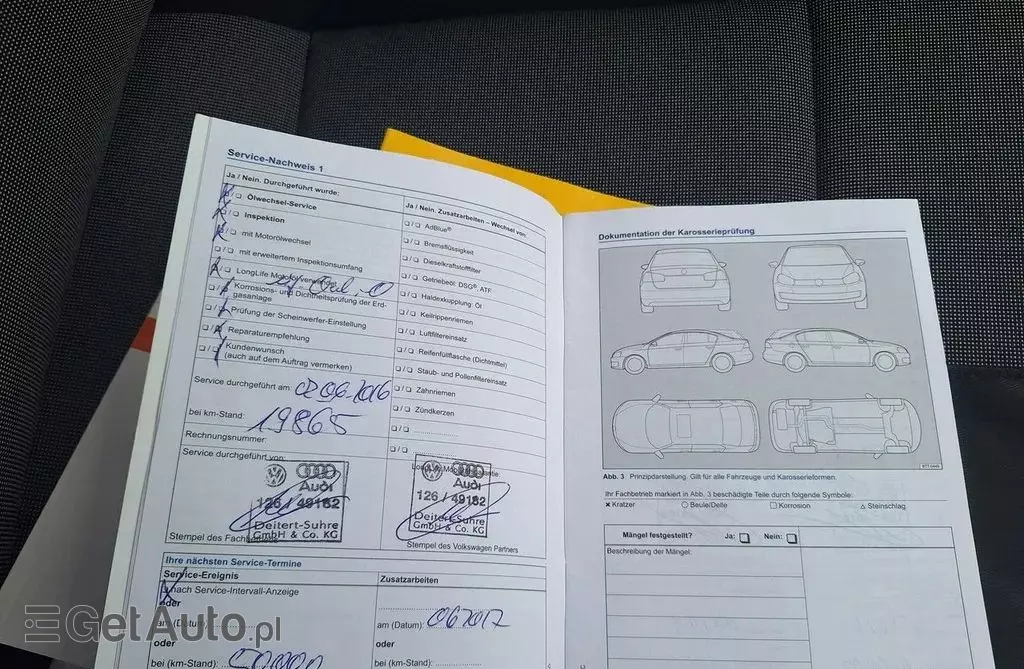 Service-Nachweis 1
Ja / Nein. Durchgeführt wurde:
Ölwechsel-Service
Inspektion
mit Motorölwechsel
mit erweitertem Inspektionsumfang
LongLife Motoröl verwendet
Korrosions- und Dichtheitsprüfung der Erd-
gasanlage
Prüfung der Scheinwerfer-Einstellung
Reparaturempfehlung
Kundenwunsch
(auch auf dem Auftrag vermerken)
Service durchgeführt am: 02.06.2016
bei km-Stand: 19865
Rechnungsnummer:
Service durchgeführt von:
Audi
126 / 49182
Deitert-Suhre
GmbH & Co. KG
Stempel des
Ja / Nein. Zusatzarbeiten – Wechsel von:
AdBlue®
Bremsflüssigkeit
Dieselkraftstofffilter
Getriebeöl: DSG®, ATF
Haldexkupplung: Öl
Keilrippenriemen
Luftfiltereinsatz
Reifenfüllflasche (Dichtmittel)
Staub- und Pollenfiltereinsatz
Zahnriemen
Zündkerzen
Audi
126 / 49182
Deitert-Suhre
GmbH & Co. KG
Stempel des Volkswagen Partners
Ihre nächsten Service-Termine
Service-Ereignis
nach Service-Intervall-Anzeige
oder
am (Datum):
oder
bei (km-Stand):
Zusatzarbeiten
am (Datum): 06 2017
oder
bei (km-Stand):
Dokumentation der Karosserieprüfung
Abb. 3 Prinzipdarstellung. Gilt für alle Fahrzeuge und Karosserieformen.
Ihr Fachbetrieb markiert in Abb. 3 beschädigte Teile durch folgende Symbole:
× Kratzer ○ Beule/Delle □ Korrosion △ Steinschlag
Mängel festgestellt? Ja: □ Nein: □
Beschreibung der Mängel:
GetAuto.pl